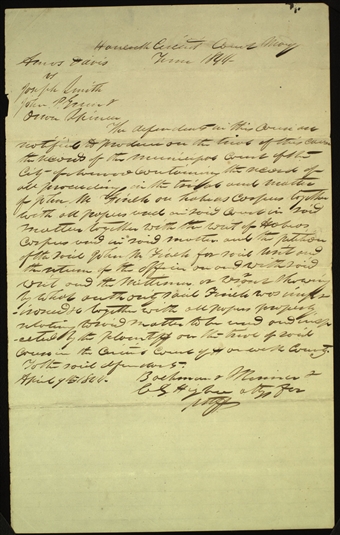 Hancock Circuit Court May
Term 184
Amos Davis
vs
Joseph Smith
John P Green &
Orson Spencer
The defendants in this Cause are
notified to produce on the trial of this cause
the record of the Municipal Court of the
City of Nauvoo containing the record of
all proceedings in the trial and matter
of John M. Finch on habeas Corpus together
with all papers used in said Court in said
matter together with the writ of Habeas
Corpus used in said matter and the petition
of the said John M. Finch for said writ and
the return of the officer on and with said
writ and the Mittimus or showing
by what authority said Finch was
together with all papers properly
relating to said matter to be used and
by the plaintiff on the trial of said
Cause in the Circuit Court of Hancock County
To the said defendants
April 184
& 
C L Higbee Attys for
Plff